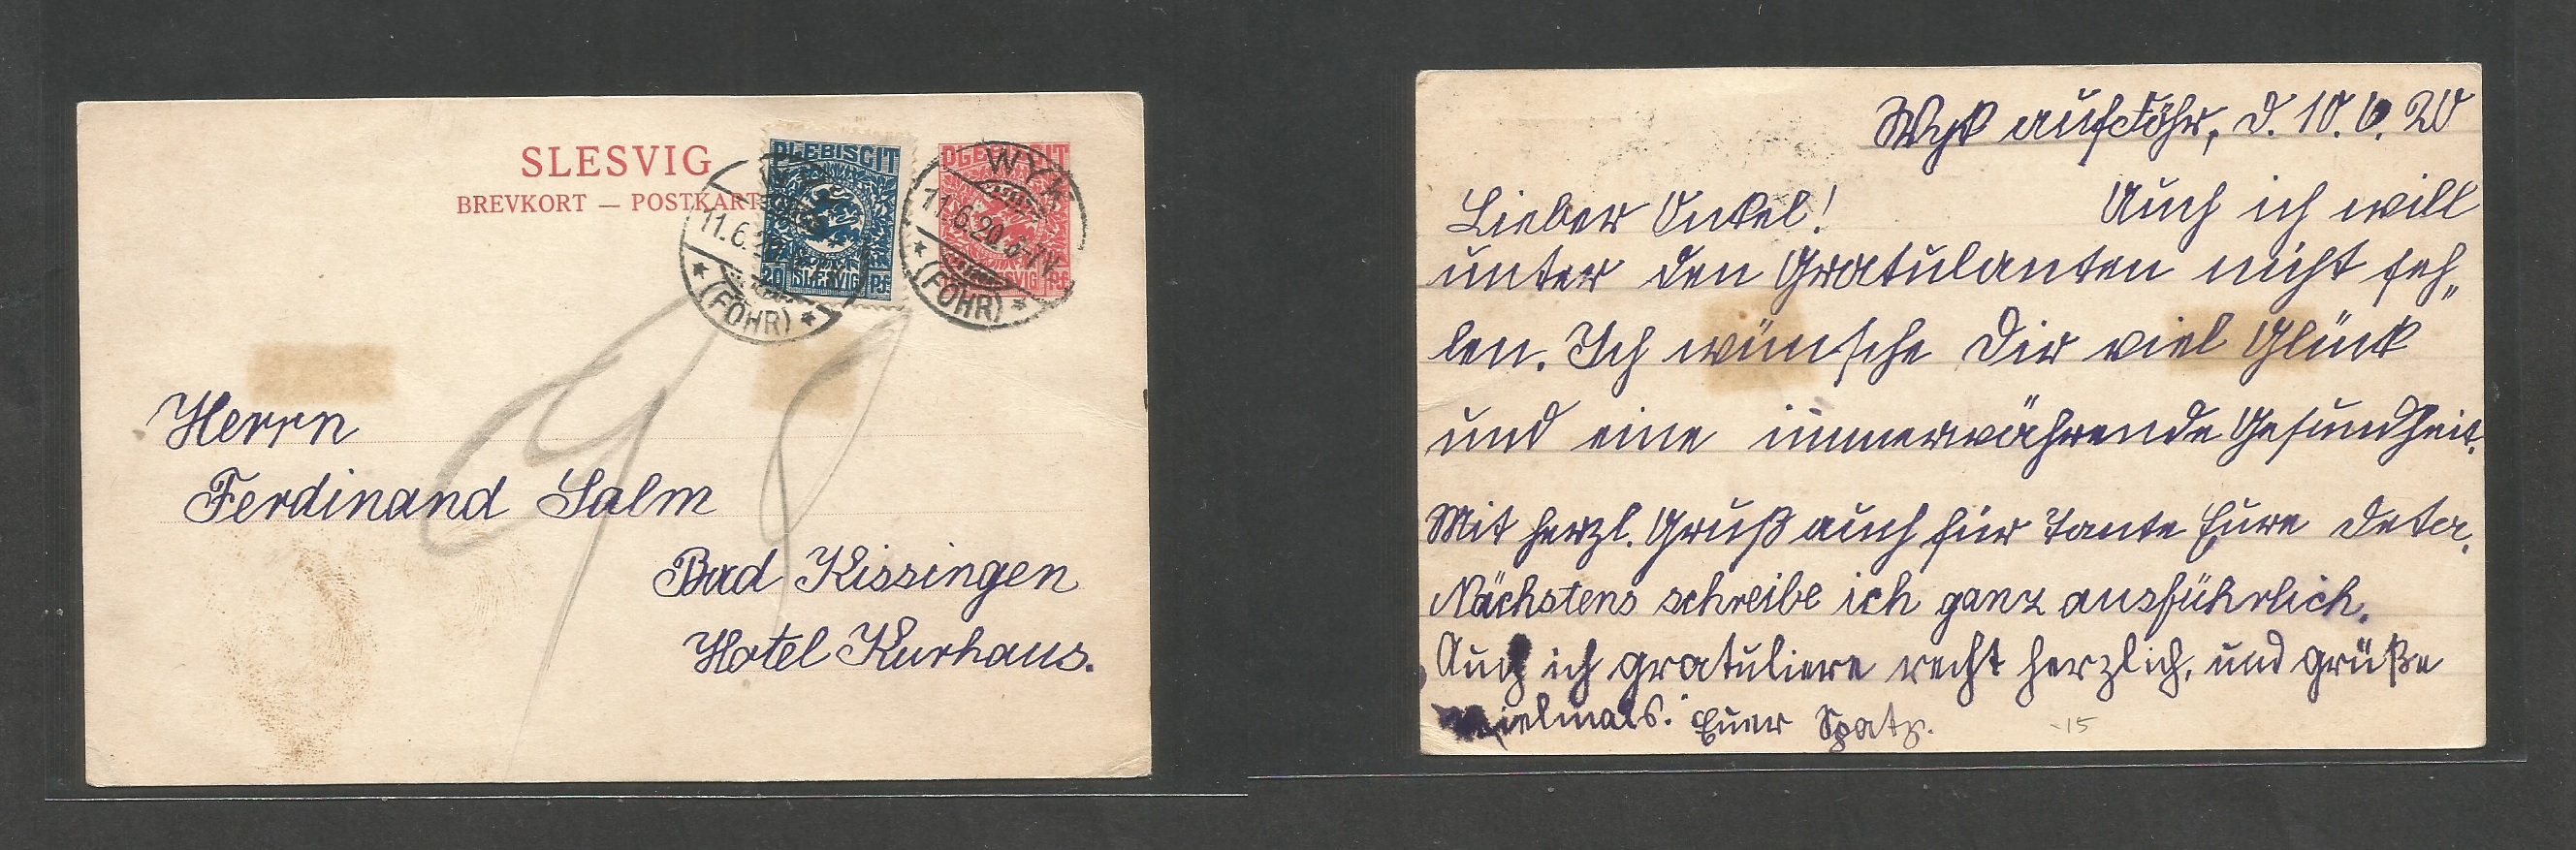 SLESVIG
BREVKORT — POSTKART
PLEBISCIT
20 SLESVIG PF
PLEBISCIT
SLESVIG PF
11.6.20
★ (FÖHR) ★
WYK
11.6.20 6-7V.
★ (FÖHR) ★
Herrn
Ferdinand Salm
Bad Kissingen
Hotel Kurhaus.
Wyk auf Föhr, d. 10.6.20
Lieber Onkel! Auch ich will
unter den Gratulanten nicht feh„
len. Ich wünsche Dir viel Glück
und eine immerwährende Gesundheit.
Mit herzl. Gruß auch für Tante Eure Deta.
Nächstens schreibe ich ganz ausführlich.
Auch ich gratuliere recht herzlich, und grüße
vielmals. Euer Spatz.
-15